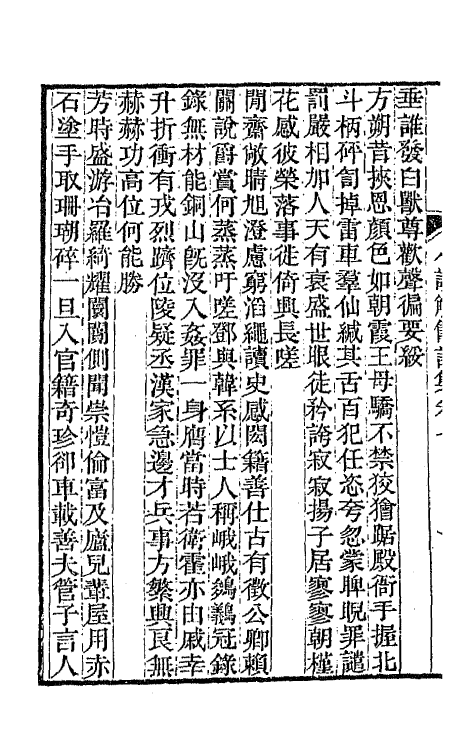 垂誰發白獸尊歡聲徧要綏
方朔昔挾恩顏色如朝霞王母驕不禁狡獪踞殿衙手握北
斗柄砰訇掉雷車羣仙緘其舌百犯任恣夸忽蒙睥睨罪譴
罰嚴相加人天有衰盛世眼徒矜誇寂寂揚子居寥寥朝槿
花感彼榮落事徙倚興長嗟
閒齋敞晴旭澄慮窮滔繩讀史感閎籍善仕古有徵公卿賴
關說爵賞何蒸蒸吁嗟鄧與韓系以士人稱峨峨鵔鸃冠錄
錄無材能銅山旣沒入姦罪一身膺當時若衛霍亦由戚幸
升折衝有戎烈躋位陵疑丞漢家急邊才兵事方繁興良無
赫赫功高位何能勝
芳時盛游冶羅綺耀闤闠側聞崇愷倫富及廬兒輩屋用赤
石塗手取珊瑚碎一旦入官籍奇珍卻車載善夫管子言人